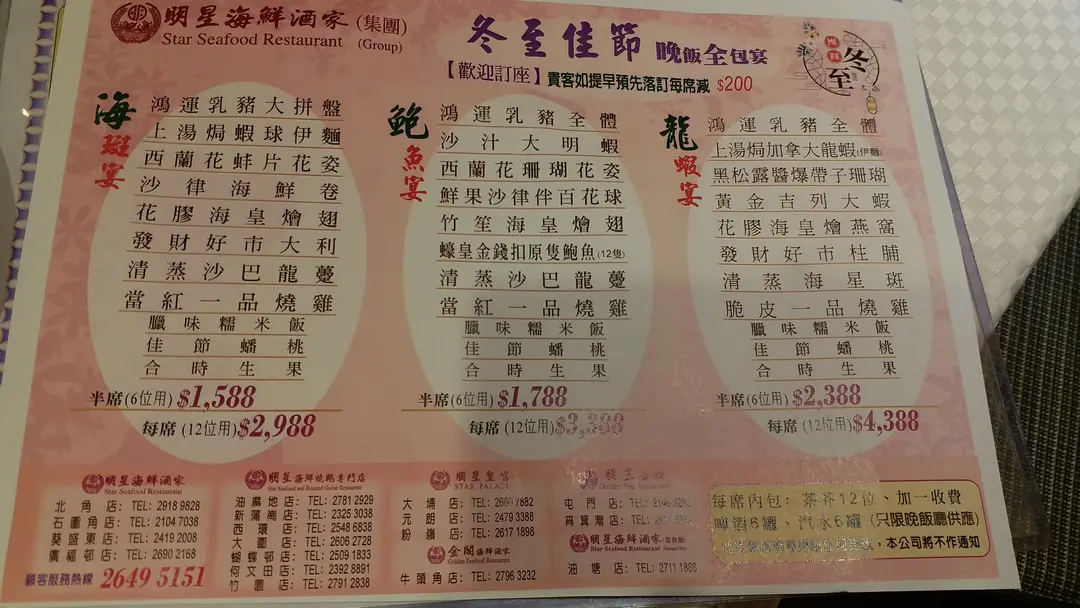 明星海鮮酒家(集團)
Star Seafood Restaurant (Group)
冬至佳節 晚飯全包宴
【歡迎訂座】貴客如提早預先落訂每席減 $200
冬至
海琁宴
鴻運乳豬大拼盤
上湯焗蝦球伊麵
西蘭花蚌片花姿
沙律海鮮卷
花膠海皇燴翅
發財好市大利
清蒸沙巴龍躉
當紅一品燒雞
臘味糯米飯
佳節蟠桃
合時生果
半席(6位用) $1,588
每席(12位用) $2,988
鮑魚宴
鴻運乳豬全體
沙汁大明蝦
西蘭花珊瑚花姿
鮮果沙律伴百花球
竹笙海皇燴翅
蠔皇金錢扣原隻鮑魚(12隻)
清蒸沙巴龍躉
當紅一品燒雞
臘味糯米飯
佳節蟠桃
合時生果
半席(6位用) $1,788
每席(12位用)
龍蝦宴
鴻運乳豬全體
上湯焗加拿大龍蝦(伊麵)
黑松露醬爆帶子珊瑚
黃金吉列大蝦
花膠海皇燴燕窩
發財好市柱脯
清蒸海星斑
脆皮一品燒雞
臘味糯米飯
佳節蟠桃
合時生果
半席(6位用) $2,388
每席(12位用) $4,388
明星海鮮酒家
Star Seafood Restaurant
北角店: TEL: 2918 9828
石圍角店: TEL: 2104 7038
葵盛東店: TEL: 2419 2008
廣福邨店: TEL: 2690 2168
顧客服務熱線 2649 5151
明星海鮮燒鵝專門店
Star Seafood and Roasted Goose Restaurant
油麻地店: TEL: 2781 2929
新蒲崗店: TEL: 2325 3038
西環店: TEL: 2548 6838
大圍店: TEL: 2606 2728
蝴蝶邨店: TEL: 2509 1833
何文田店: TEL: 2392 8891
竹園店: TEL: 2791 2838
明星皇宮
STAR PALACE
大埔店: TEL: 2660 7882
元朗店: TEL: 2479 3388
粉嶺店: TEL: 2617 1898
金閣海鮮酒家
Golden Seafood Restaurant
牛頭角店: TEL: 2796 3232
屯門店: TEL:
筲箕灣店: TEL:
明星海鮮酒家
Star Seafood Restaurant
油塘店: TEL: 2711 1888
每席內包: 茶芥12位、加一收費
啤酒6罐、汽水6罐 (只限晚飯廳供應)
,本公司將不作通知